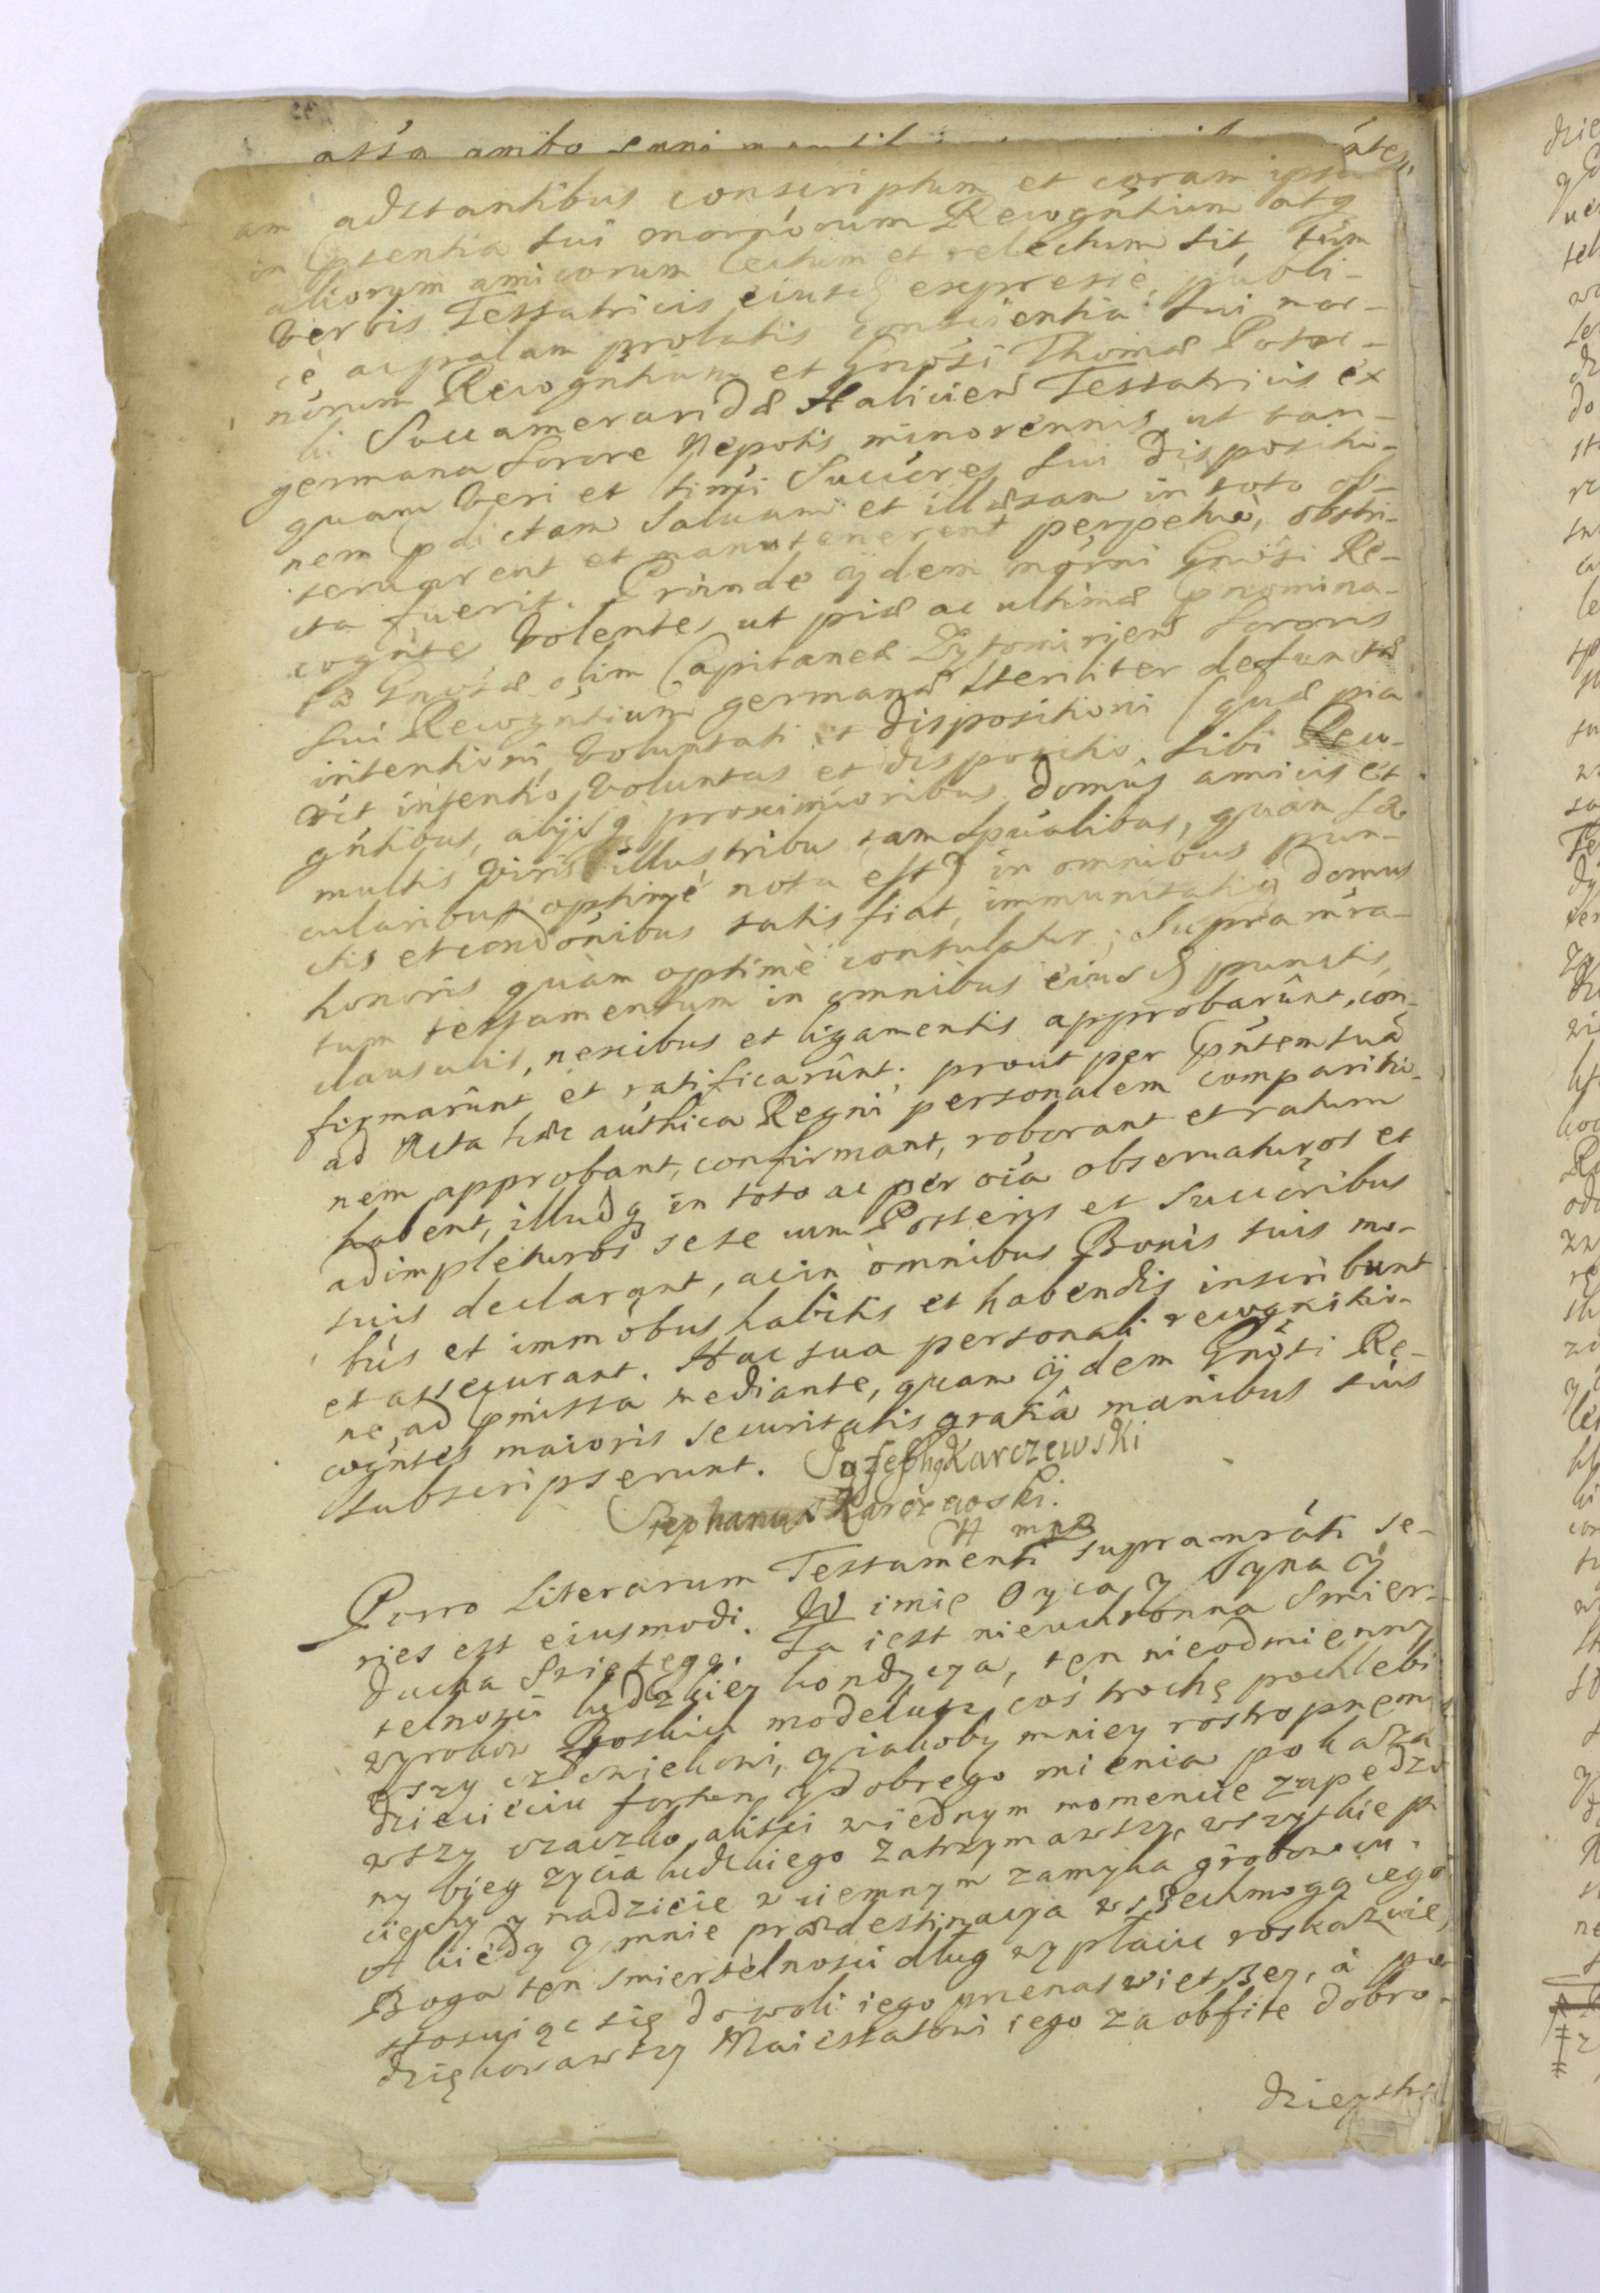 assa ambo
am adstantibus conscriptum et coram ipsa
in pñtentia sui mgrñorum Recogñtium atq
aliorum amicorum lectum et relectum sit, tùm
verbis Testatricis eiusd expressè, publi-
cè, ac palam prolatis conscientia sui mgr-
ñorum Recogñtium et Gnosi Thomæ Potoc-
ki Succameraridæ Halicien Testatricis ex
germana Sorore Nepotis minorennis, ut tan-
quam veri et ltimi Succres sui dispositio-
nem pdictam salvam et illæsam in toto ob-
servarent et manutenerent perpetuò, obstri-
cta fuerit. Proinde ijdem mgrñi Gnosi Re-
cogñtes volentes, ut piæ ac ultimæ pnomina-
tæ Gnosæ olim Capitaneæ Zytomirien Sororis
sui Recogñtium germanæ steriliter defunctæ
intentioni, voluntati et dispositioni (quæ pia
intentio, voluntas et dispositio, sibi Reco-
gñtibus, alijsq proximioribus domûs amicis et
multis viris illustribus tam spũalibus, quàm sæ-
cularibus optimè nota est) in omnibus pun-
ctis et condõnibus satisfiat, immunitatiq domus
honoris quàm optimè consulatur; supra mra-
tum testamentum in omnibus eiusd punctis,
clausulis, nexibus et ligamentis approbarûnt, con-
firmarûnt et ratificarûnt; prout per pñtem suã
ad Acta hæc aúthica Regni personalem comparitio-
nem approbant, confirmant, roborant et ratum
habent, illudq in toto ac per oĩa observaturos et
adimpleturos sese cum Posterys et Succribus
suis declarant, ac in omnibus Bonis suis mo-
bùs et immõbus habitis et habendis inscribunt
et assecurant. Hac sua personali recognitio-
ne, ad pmissa mediante, quam ijdem Gnosi Re-
cogñtes maioris securitatis gratiâ manibus suis
subscripserunt. Josephq Karczewski
Stephanus Karczewski.
mpp
Porro Literarum Testamenti supramrãti se-
ries est eiusmodi. W imie Oyca, y Syna y
Ducha Swiętego. Ta iest nieuchronna Smier-
telnosci ludzkiey kondycya, ten nieodmienny
wyrokow Boskich modelusz, coś trochę pochlebi
wszy człowiekowi, y iakoby mniey rostropnem
dziecięciu fortun y dobrego mienia pokaza
wszy czaczko, alisci wiednym momencie zapędzo
ny bieg zycia ludzkiego zatrzymawszy, wszytkie po
ciechy y nadzieie w ciemnym zamyka grobowcu.
A kiedy y mnie prædestinacya wszechmogącego
Boga ten smiertelnosci dług wypłacic roskazuie,
stosuiąc się do woli iego przenaswietszey, à po
dziękowawszy Maiestatowi iego za obfite dobro-
dzieystwa